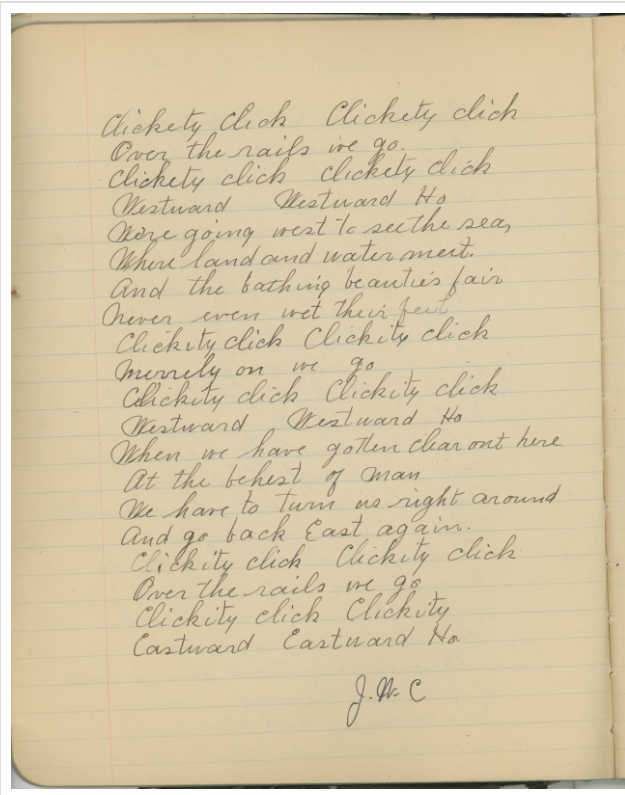 Clickety Click Clickety click
Over the rails we go.
Clickety click clickety click
Westward Westward Ho
We're going west to see the sea,
Where land and water meet.
And the bathing beauties fair
Never even wet their feet
Clickity click Clickity click
Merrely on we go
Clickity click Clickity click
Westward Westward Ho
When we have gotten clear out here
At the behest of man
We have to turn us right around
And go back East again.
Clickity click Clickity click
Over the rails we go
Clickity click Clickity
Eastward Eastward Ho.
J.W.C